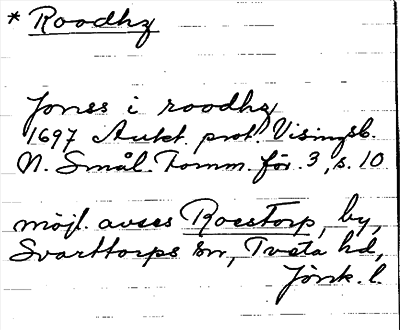 * Roodhz
Jonss i roodhz
1697 Aukt. prot. Visingsb.
N. Smål. Fornm. för. 3, s. 10
möjl. avses Rosstorp, by,
Svarttorps sn, Tveta hd,
Jönk. l.